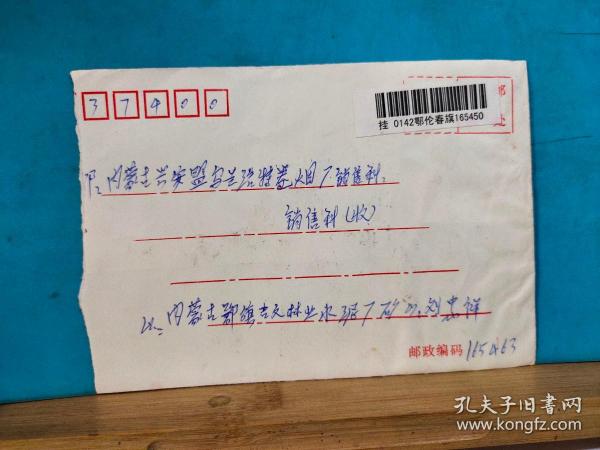 37400
挂 0142鄂伦春旗165450
内蒙古兴安盟乌兰浩特卷烟厂销售科
销售科(收)
内蒙古鄂旗吉文林业水泥厂矿山刘忠祥
邮政编码 165463
孔夫子旧书网
www.kongfz.com